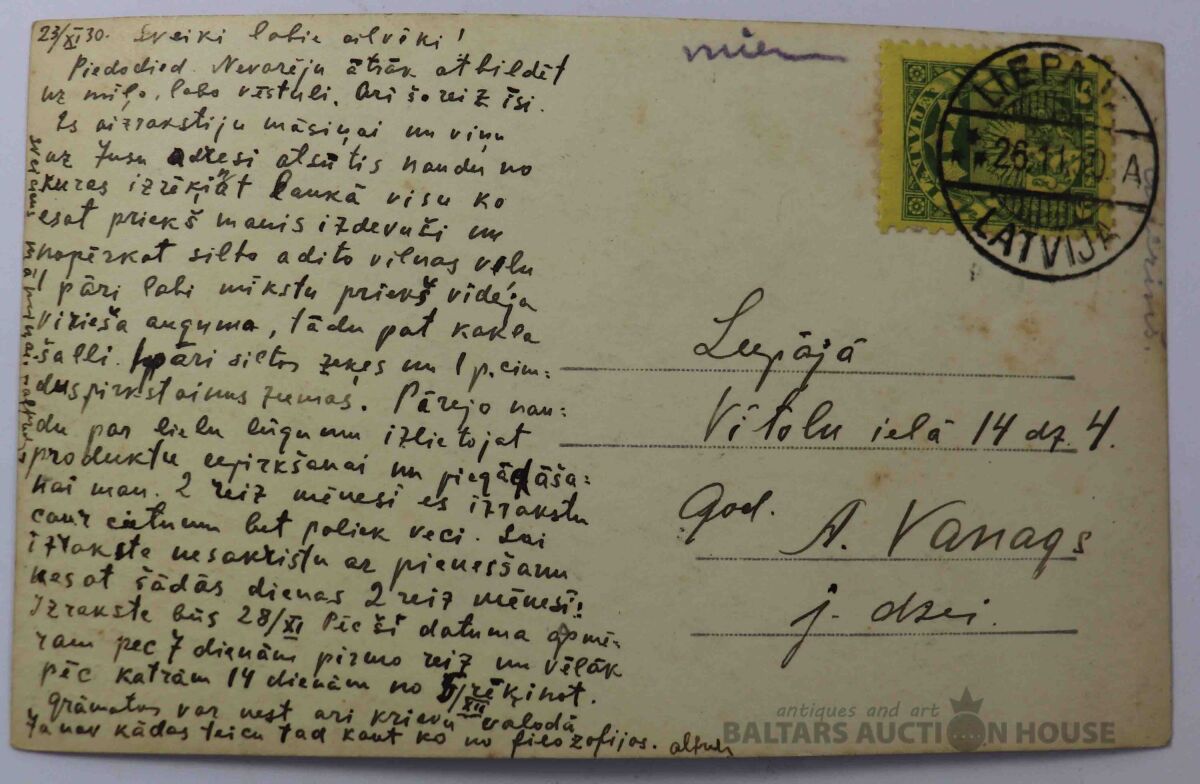 23/XI 30. Sveiki labie cilvēki!
Piedodied. Nevarēju ātrāk atbildēt
uz mīļo, labo vēstuli. Arī šoreiz īsi.
Es aizrakstīju māsiņai un viņa
uz Jūsu adresi atsūtīs naudu no
kuras izrēķināt laukā visu ko
esat priekš manis izdevuši un
nopērkat silto adīto vilnas veļu
1 pāri labi mīkstu priekš vidēja
vīrieša auguma, tādu pat kakla
šalli. 1 pāri siltas zeķes un 1 p. cim=
dus pirkstainus ziemas. Pārejo nau=
du par lielu lūgumu izlietojat
produktu iepirkšanai un piegādāša=
nai man. 2 reiz mēnesī es izrakstu
caur cietumu bet paliek veci. Lai
izrakste nesakristu ar pienesšanu
nesat šādās dienas 2 reiz mēnesī!
Izrakste būs 28/XI Pēc šī datuma apmē-
ram pēc 7 dienām pirmo reiz un vēlāk
pēc katrām 14 dienām no 5/XII rēķinot.
grāmatas var nest arī krievu valodā
Ja nav kādas teicu tad kaut ko no filozofijas.
LATVIJA
LIEPAJA
26.11.30 A
LATVIJA
Leepājā
Vītolu ielā 14 dz. 4.
God.
A. Vanags
j. dzei.
antiques and art
BALTARS AUCTION HOUSE